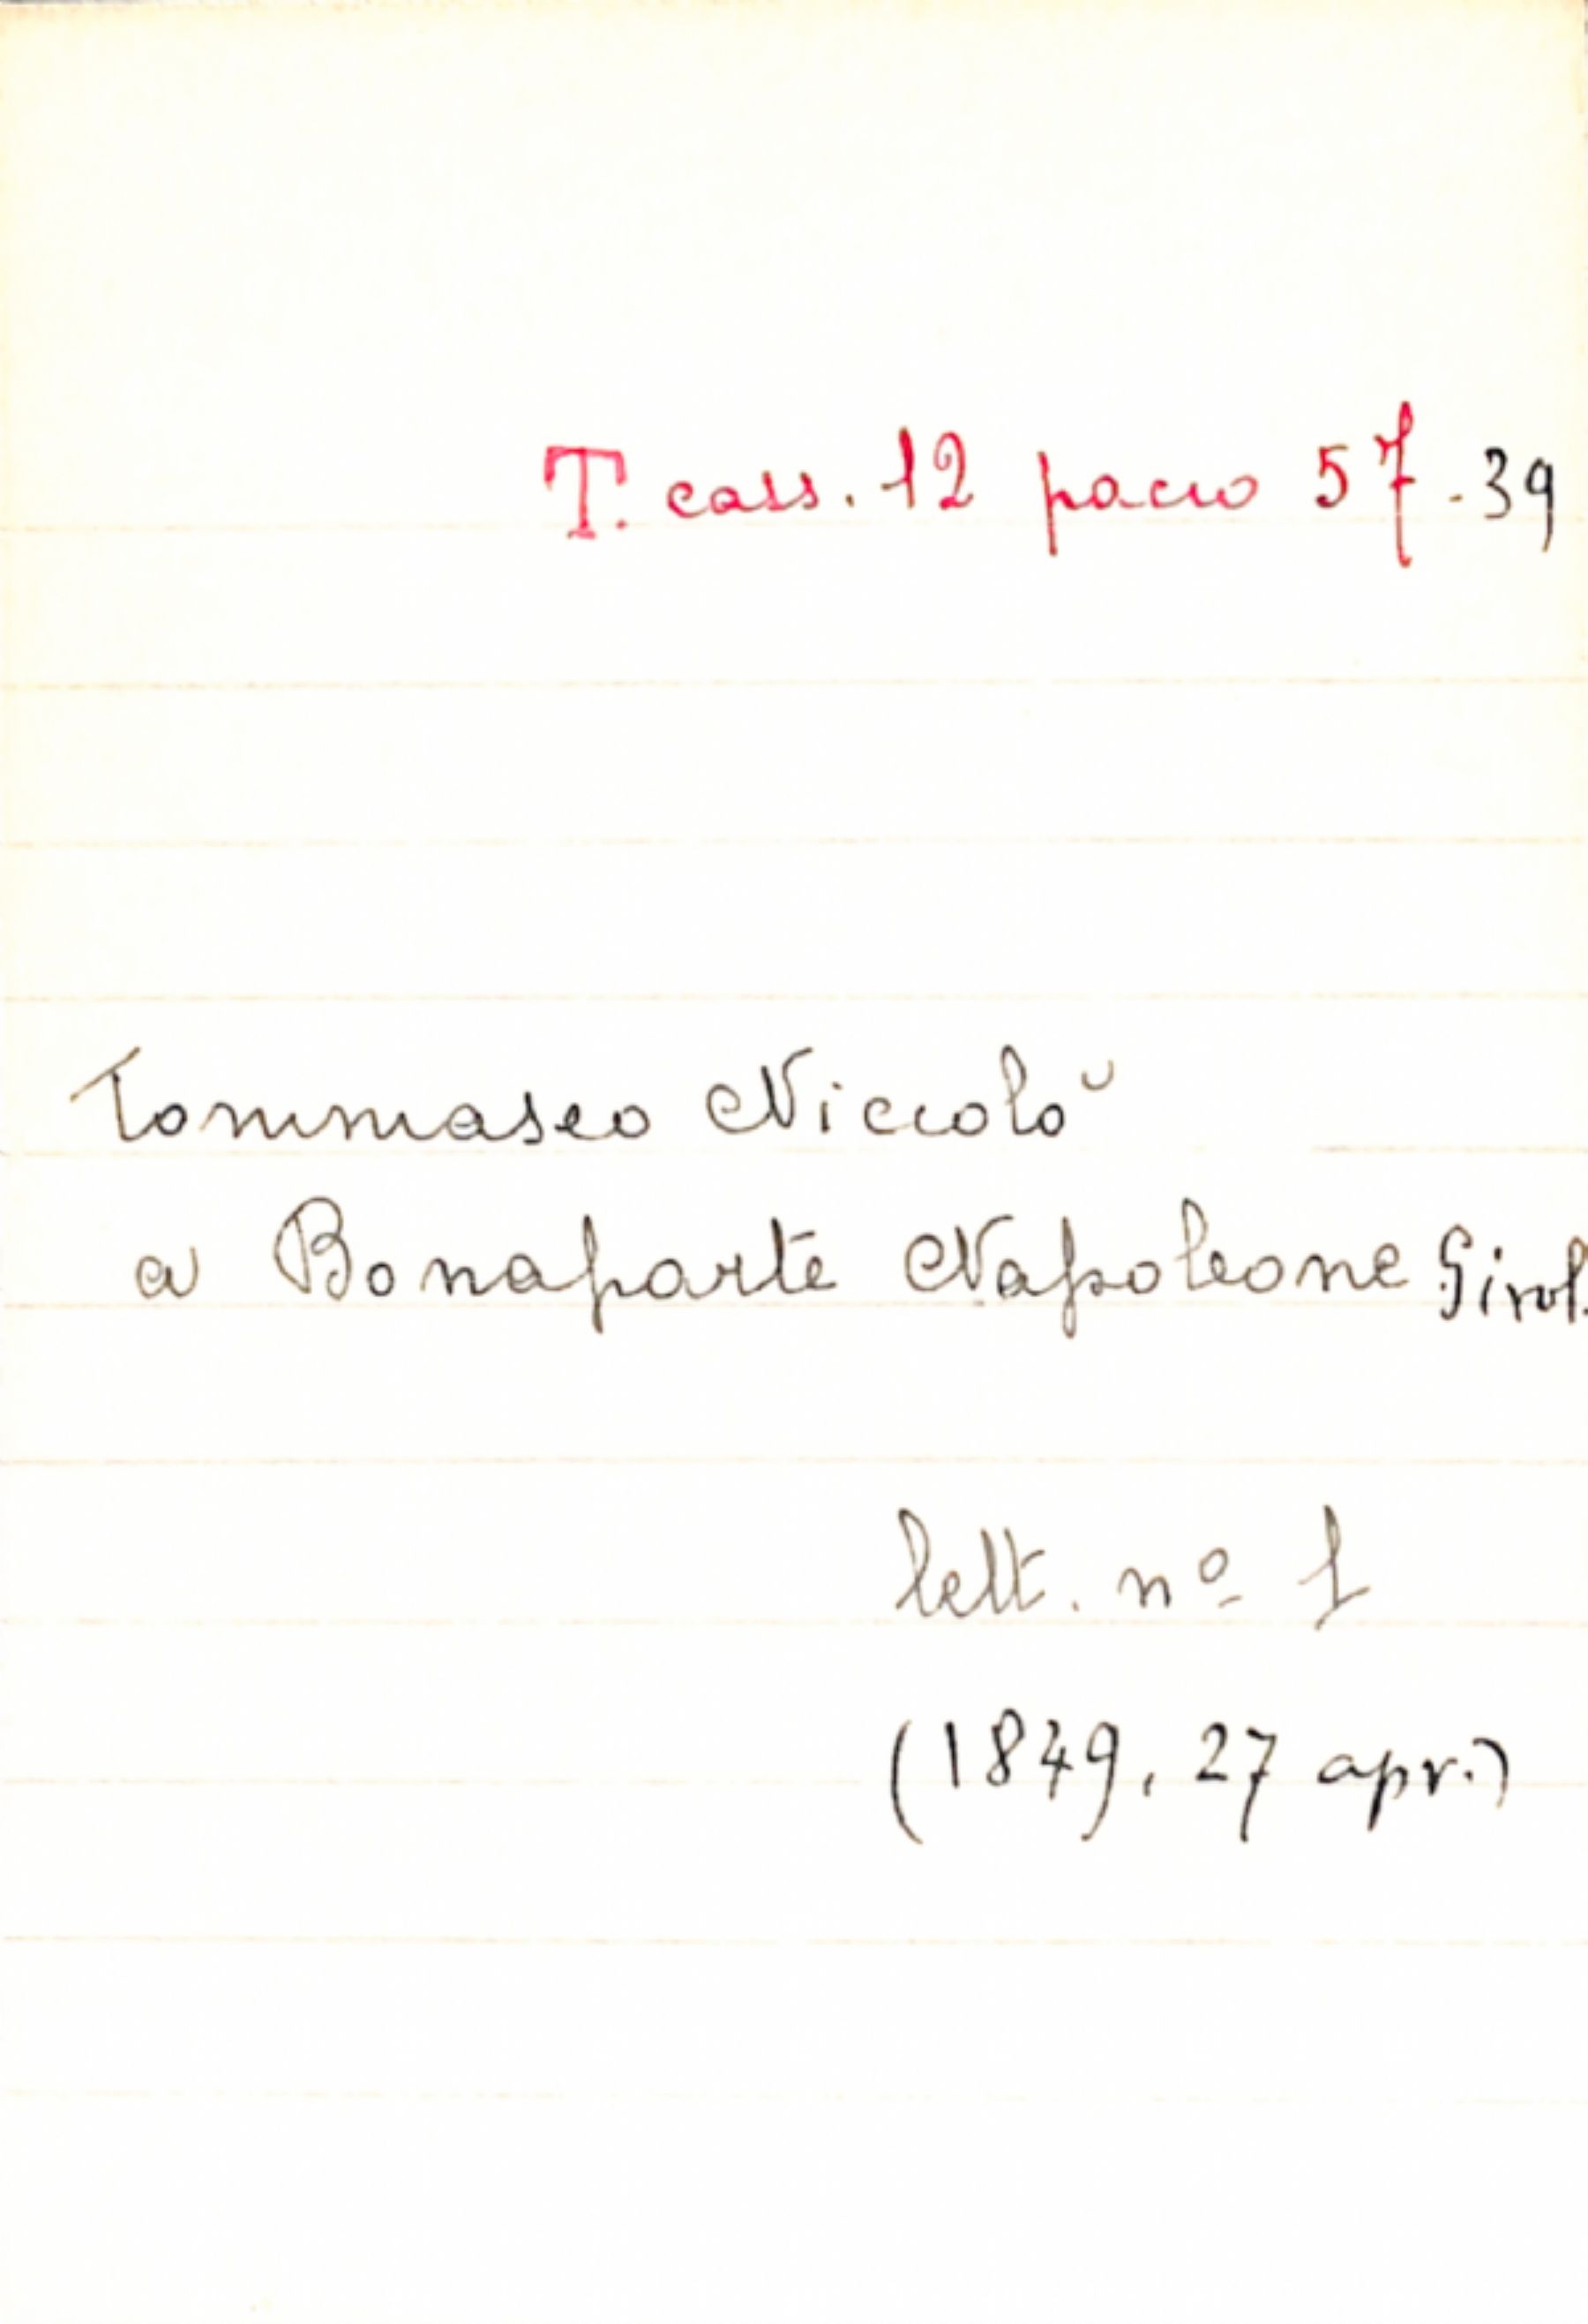 T. cass. 12 pacco 57.39
Tommaseo Niccolò
a Bonaparte Napoleone Girol.
lett. nº 1
(1849, 27 apr.)